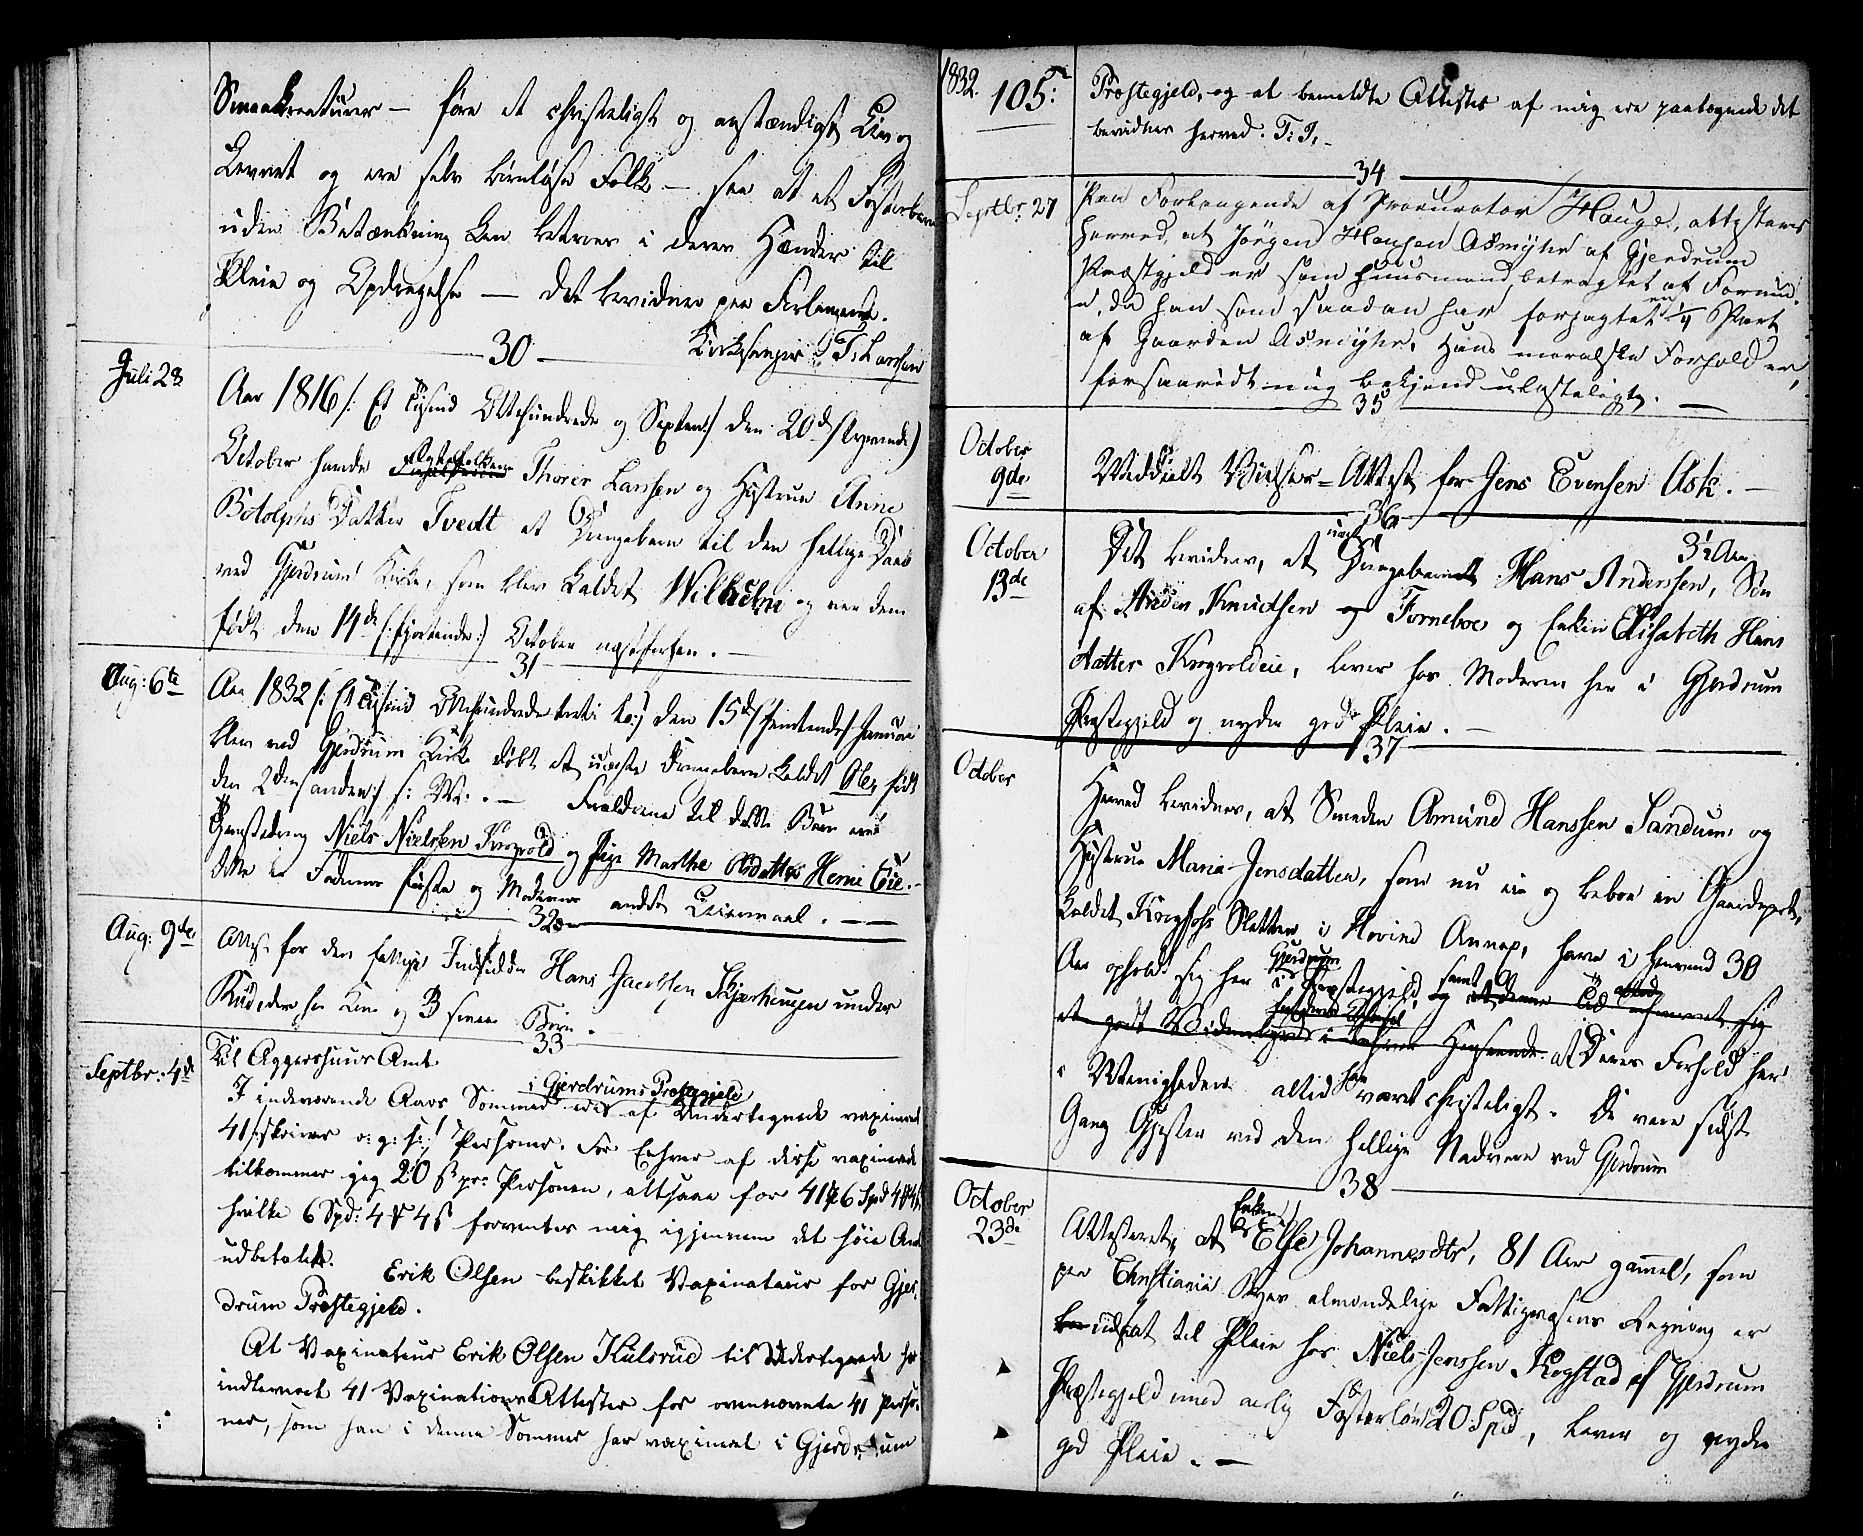 Smaakreaturer — föra et christeligt og anstændigt Liv og
Levnet og ere selv barnløse Folk — saa at et Fosterbarn
uden Betænkning kan betroes i deres Hænder til
Pleie og Opdragelse — det bevidner paa Forlangende.
Kirkesanger T. Larssen
30
Juli 28
Aar 1816 /: Et Tusind Ottehundrede og Sexten :/ den 20de /: tyvende :/
October havde Ægtefolkene Thorer Larssen og Hustrue Anne
Botolphs Datter Tvedt et Drengebarn til den hellige Daab
ved Gjerdrum Kirke, som blev kaldet Wilhelm og var dem
født den 14de (: fjortende :) October næstforhen. —
31
Aug: 6te
Aar 1832 /: Et Tusind Ottehundrede treti to :/ den 15de /: femtende :/ Januari
blev ved Gjerdrum Kirke døbt et uægte Drengebarn kaldet Ole, født
den 2den /: anden :/ s: M: . — Forældrene til dette Barn ere
Niels Nielsen Krogvold og Pige Marthe Olsdatter Hernie Eie. —
Dette er Faderens første og Moderens andet Leiermaal. —
32
Aug: 9de
Attest for den fattige Inderst Hans Jacobsen under
Kulsrud, der har Kone og 3 smaa Børn.
33
Septbr: 4de
Til Aggershuus Amt
I indeværende Aars Sommer ere i Gjerdrums Præstegjeld af Undertegnede vaxineret
41 /: skriver o: g: f: :/ Personer. For Enhver af disse vaxinerede
tilkommer jeg 20 ß pr: Personen, altsaa for 41 6 Spd 4 # 4 ß,
hvilke 6 Spd: 4 # 4 ß forventes mig igjennem det höie Amt
udbetalet. Erik Olsen beskikket Vaxinateur for Gjer-
drum Præstegjeld.
At Vaxinateur Erik Olsen Kulsrud til Undertegnede har
indleveret 41 Vaxinations Attester for ovennævnte 41 Perso-
ner, som han i denne Sommer har vaxineret i Gjerdrum
1832. 105.
Præstegjeld, og at bemeldte Attester af mig ere paategnede det
bevidnes herved. T. L. —
34
Septbr: 27
Paa Forlangende af Procurator Hauge, attesteres
herved, at Jörgen Hansen Asmyhr af Gjerdrum
Præstgjeld er som Huusmand betragtet at Formue
n, da han som saadan har forpagtet en 1/4 Part
af Gaarden Asmyhr. Hans moralske Forhold er,
forsaavidt mig bekjend ulasteligt. —
35
October
9de
Meddeelt Attest for Jens Evensen Ask. —
36
October
13de
Det bevidnes, at uægte Drengebarnet Hans Andersen, 3 1/2 Aar, Søn
af Anders Knudsen Forneboe og Enken Elisabeth Hans
datter Krogvoldeie, lever hos Moderen her i Gjerdrum
Præstegjeld og nyder god Pleie. —
37
October
Herved bevidnes, at Smeden Amund Hanssen Sandum og
Hustrue Maria Jensdatter, som nu eie og beboe en Gaardpart,
kaldet Krogsohs Sletten i Hovind Annex, have i henved 30
Aar opholdt sig her i Gjerdrum Præstegjeld samt
at Deres Forhold her
i Menigheden altid har været christeligt. De vare sidste
Gang Gjester ved den hellige Nadvere ved Gjerdrum
38
October
23de
Attesteret, at Enken Else Johannesdtr, 81 Aar gammel, som
paa Christiania Byes almindelige Fattigvæsens Regning er
udsat til Pleie hos Niels Jenssen Kogstad af Gjerdrum
Præstegjeld imod aarlig Fosterløn 20 Spd, lever og nyder
god Pleie. —